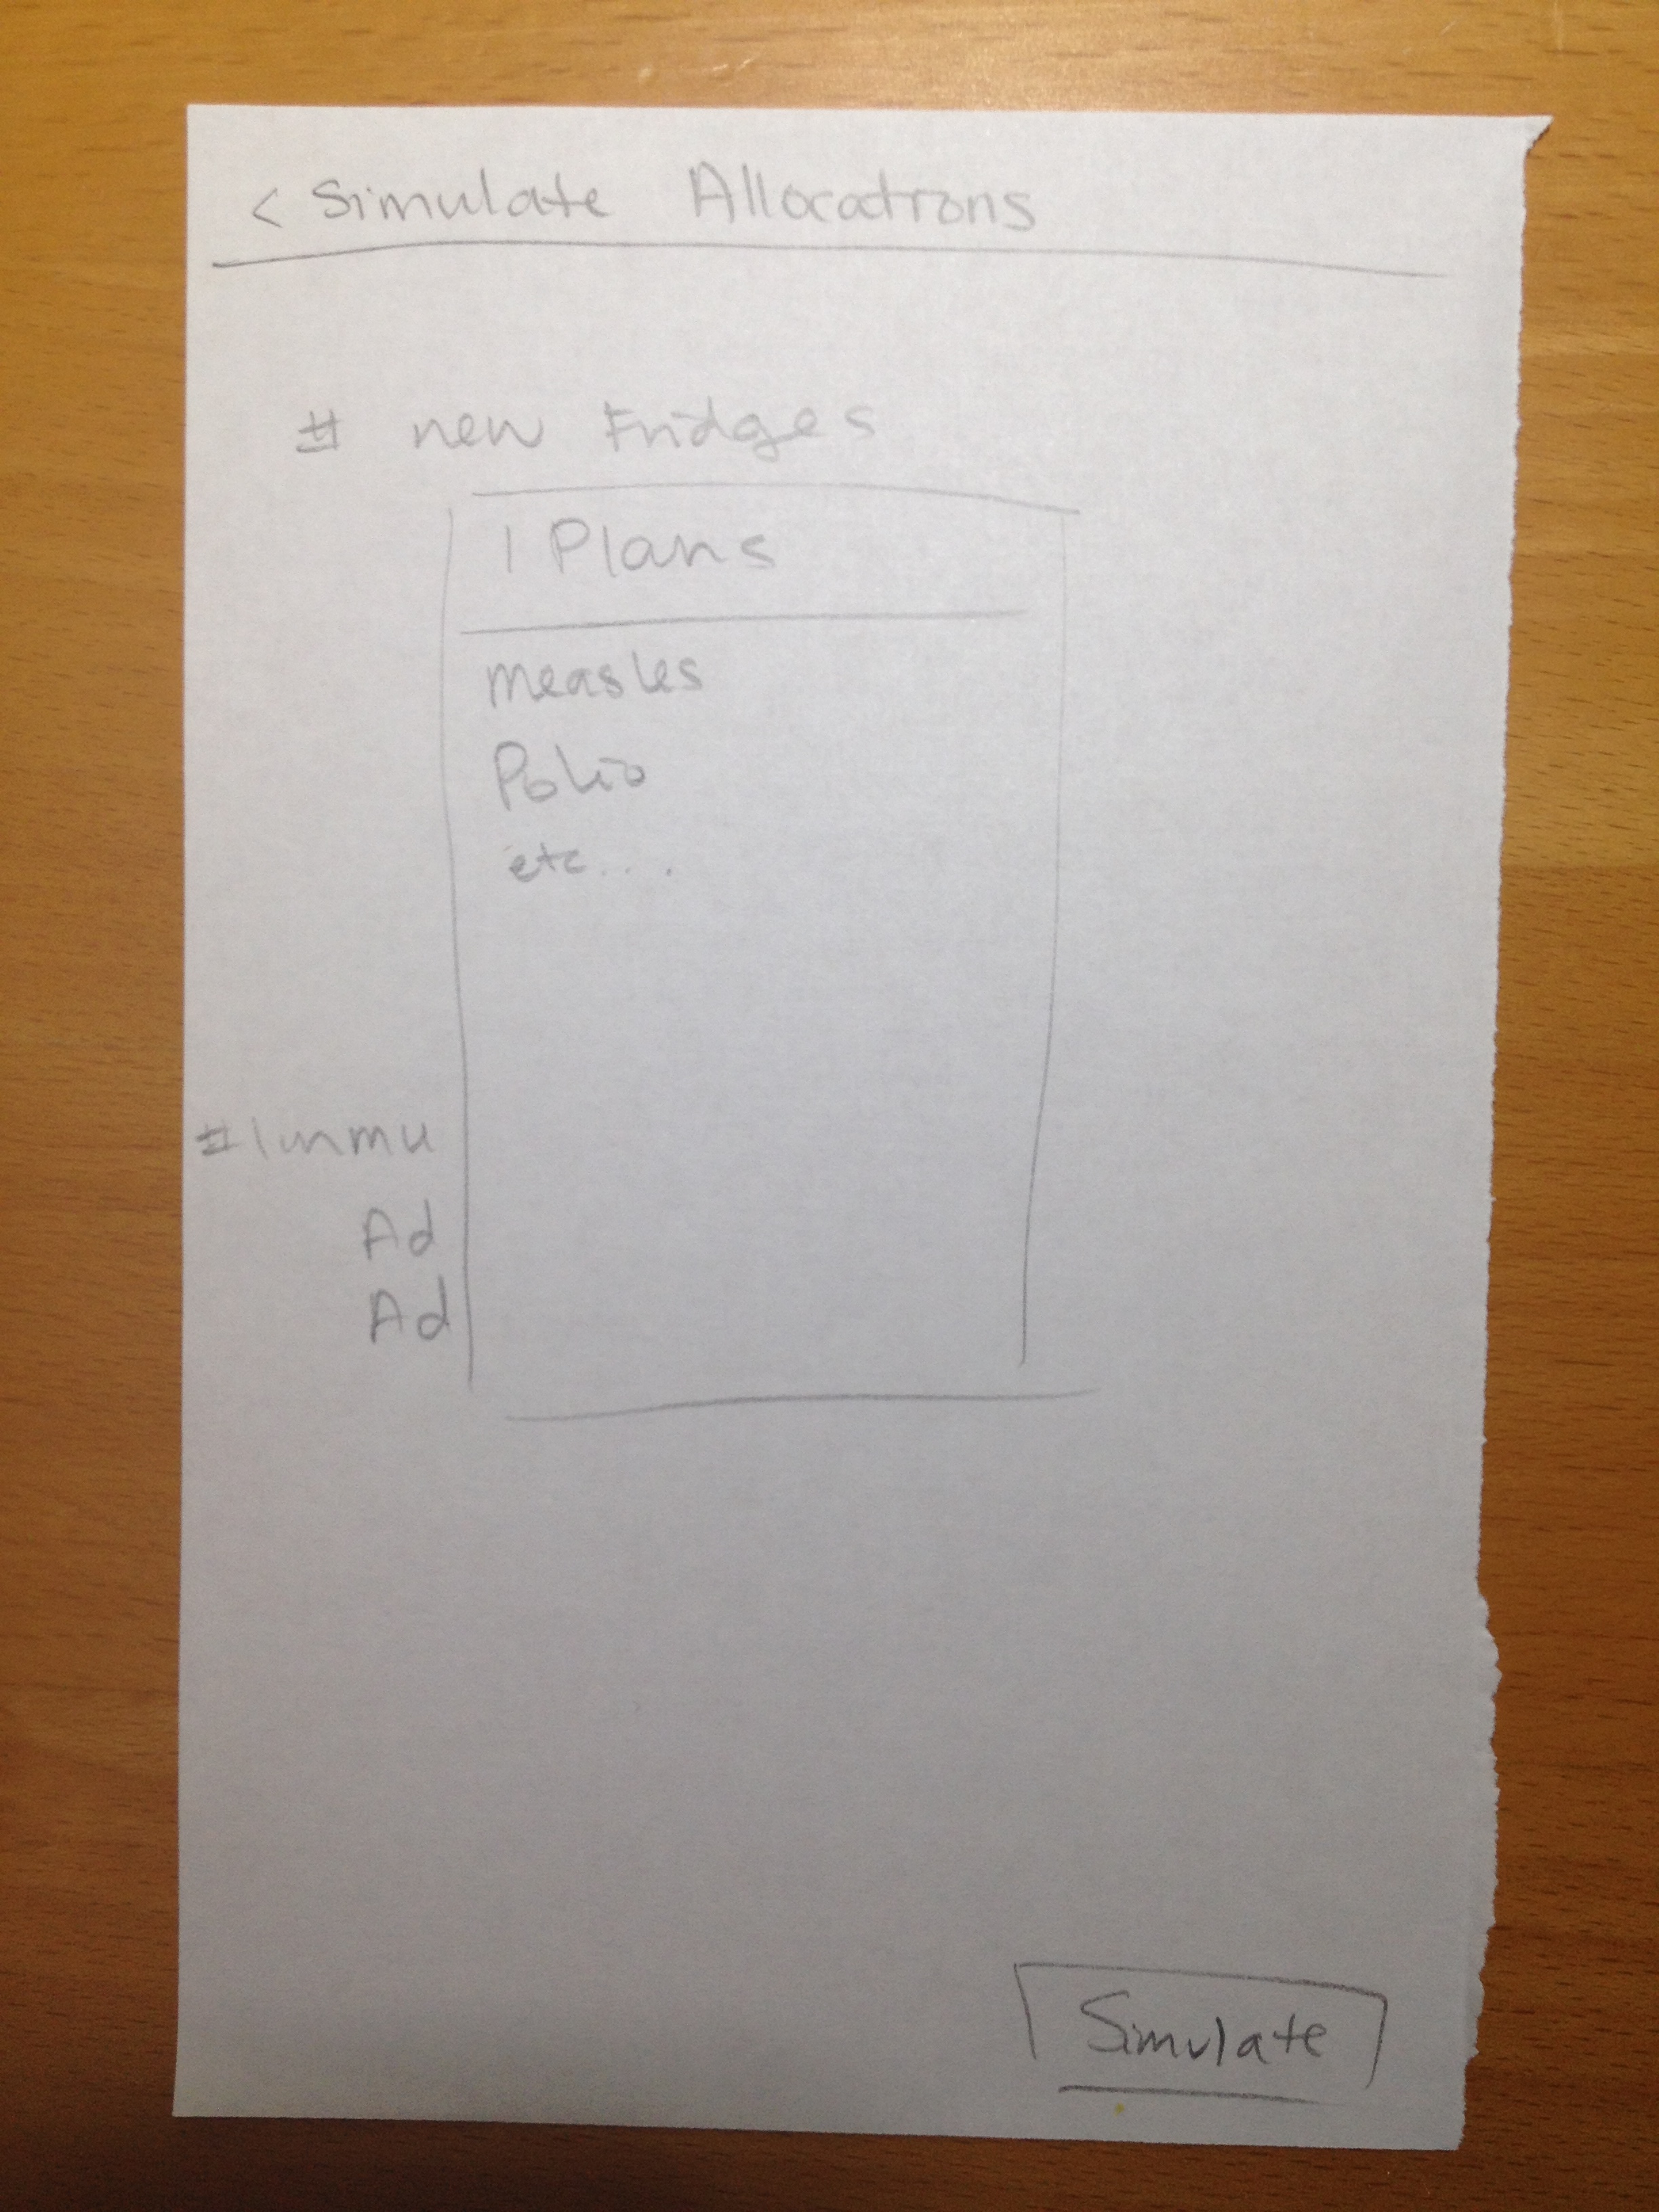 < Simulate Allocations
# new Fridges
1 Plans
measles
Polio
etc....
# Immu
Ad
Ad
Simulate